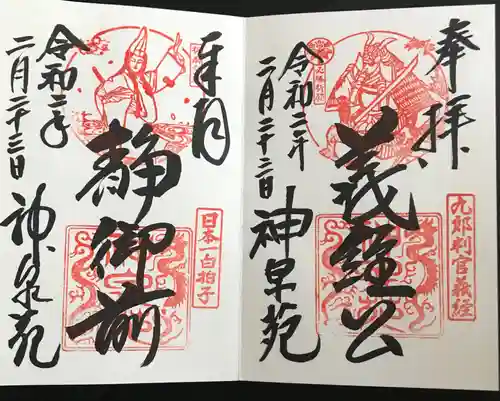 奉拝
九郎判官義経
義経公
令和二年
二月二十三日
神泉苑
奉拝
日本一白拍子
静御前
令和二年
二月二十三日
神泉苑